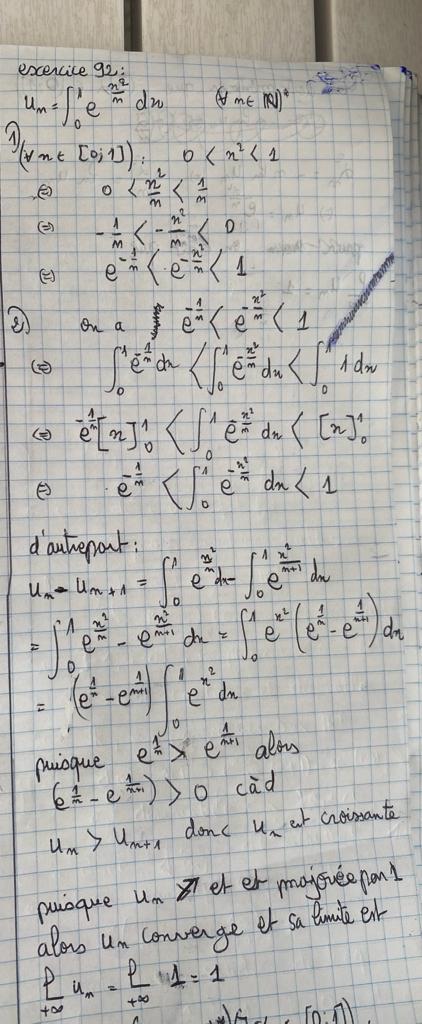 exercice 92:
u_n = ∫_0^1 e^{x²/n} dx (∀ n ∈ IN)*
1) (∀ x ∈ [0;1]): 0 < x² < 1
(=) 0 < x²/n < 1/n
(=) -1/n < -x²/n < 0
(=) e^{-1/n} < e^{-x²/n} < 1
2) on a e^{-1/n} < e^{-x²/n} < 1
(=) ∫_0^1 e^{-1/n} dx < ∫_0^1 e^{-x²/n} dx < ∫_0^1 1 dx
(=) e^{-1/n} [x]_0^1 < ∫_0^1 e^{-x²/n} dx < [x]_0^1
(=) e^{-1/n} < ∫_0^1 e^{-x²/n} dx < 1
d'autrepart:
u_n - u_{n+1} = ∫_0^1 e^{x²/n} dx - ∫_0^1 e^{x²/(n+1)} dx
= ∫_0^1 e^{x²/n} - e^{x²/(n+1)} dx = ∫_0^1 e^{x²} (e^{1/n} - e^{1/(n+1)}) dx
= (e^{1/n} - e^{1/(n+1)}) ∫_0^1 e^{x²} dx
puisque e^{1/n} > e^{1/(n+1)} alors
(e^{1/n} - e^{1/(n+1)}) > 0 càd
u_n > u_{n+1} donc u_n est croissante
puisque u_n ↗ et et majorée par 1
alors u_n converge et sa limite est
L_{+∞} u_n = L_{+∞} 1 = 1